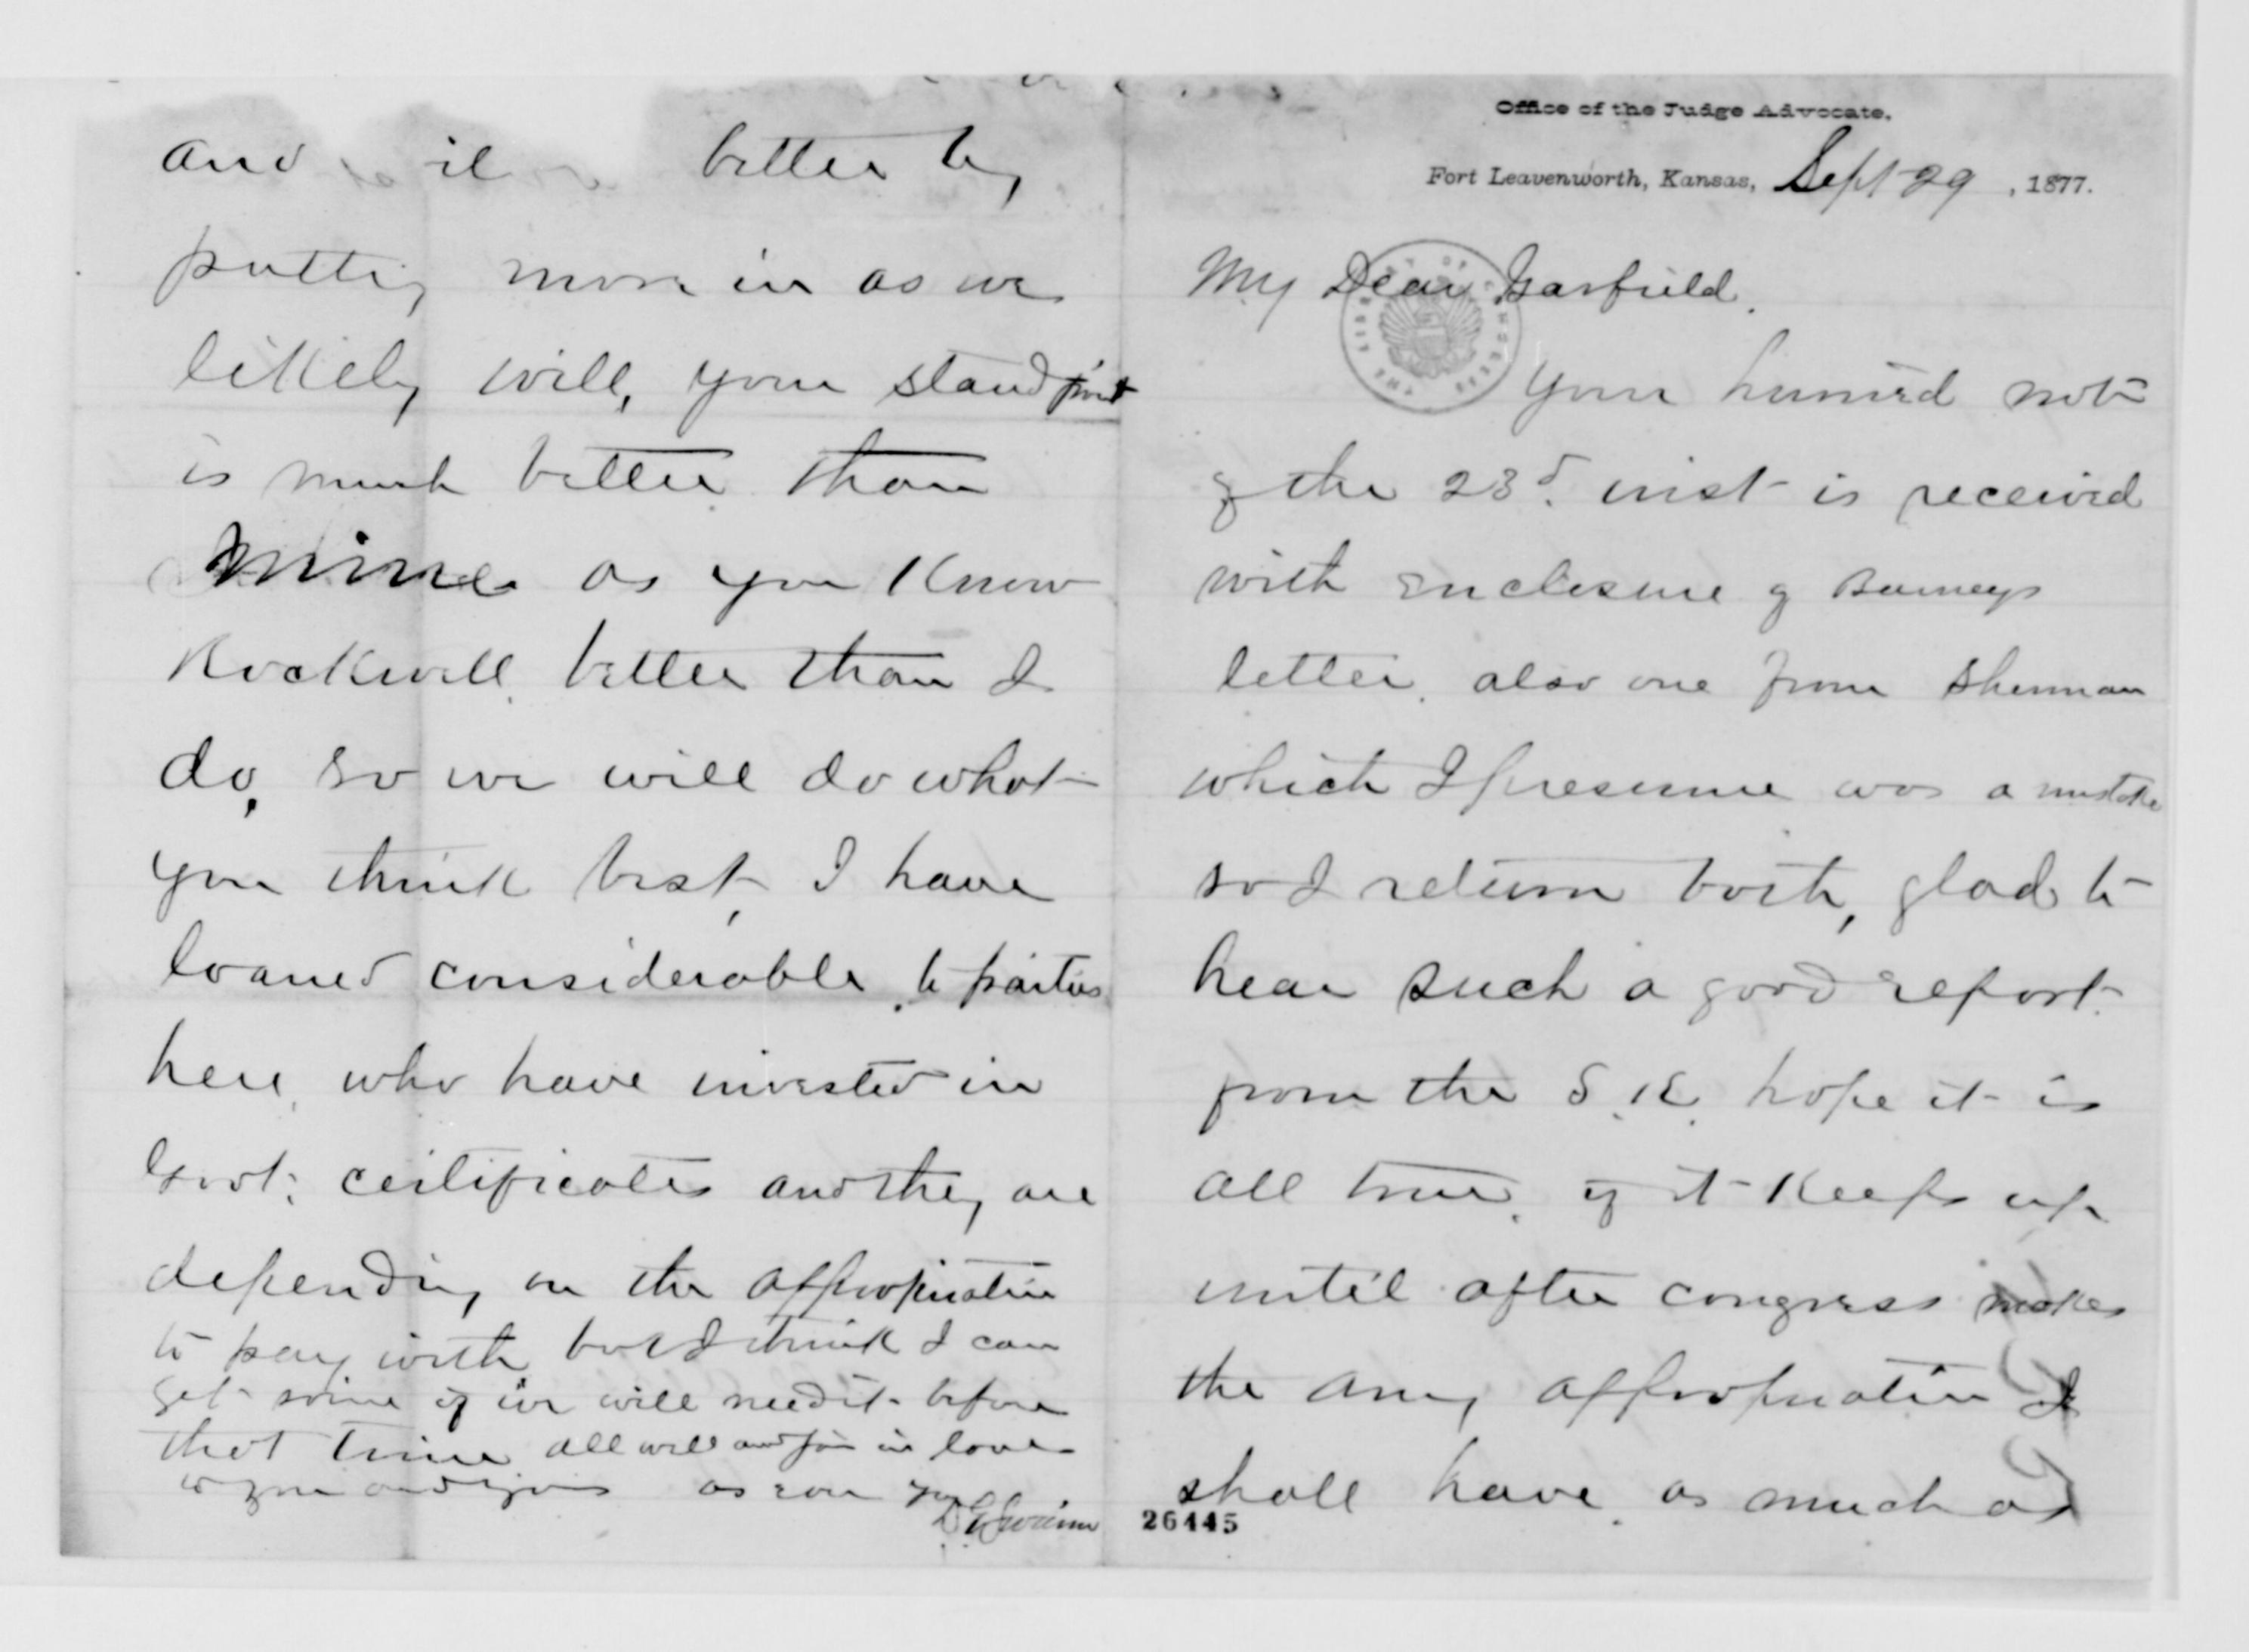 Office of the Judge Advocate.
Fort Leavenworth, Kansas, Sept 29, 1877.
My Dear Garfield.
Your hurried note
of the 23d. inst is received
with enclosure of Barneys
letter. also one from Sherman
which I presume was a mistake
so I return both, glad to
hear such a good report
from the S. K. hope it is
all true. if it keeps up
until after congress makes
the Army appropriation I
shall have as much as
26445
and better by
putting more in as we
likely will, your standpoint
is much better than
mine as you know
Rockwell better than I
do, so we will do what
you think best, I have
loaned considerable to parties
here, who have invested in
Govt. certificates and they are
depending on the appropriation
to pay with but I think I can
get some if we will need it before
that time all well and join in love
to you and yours as ever yours
D G Swaim
THE LIBRARY OF CONGRESS